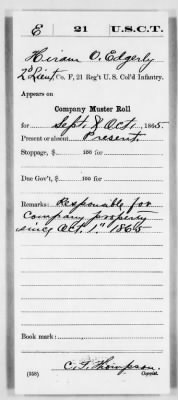 E 21 U.S.C.T.
Hiram O. Edgerly
2d Lieut, Co. F, 21 Reg't U. S. Col'd Infantry.
Appears on
Company Muster Roll
for Sept. & Oct., 1865.
Present or absent Present.
Stoppage, $ 100 for
Due Gov't, $ 100 for
Remarks: Responsible for
company property
since Oct. 1." 1865
Book mark:
C. F. Thompson.
(358) Copyist.